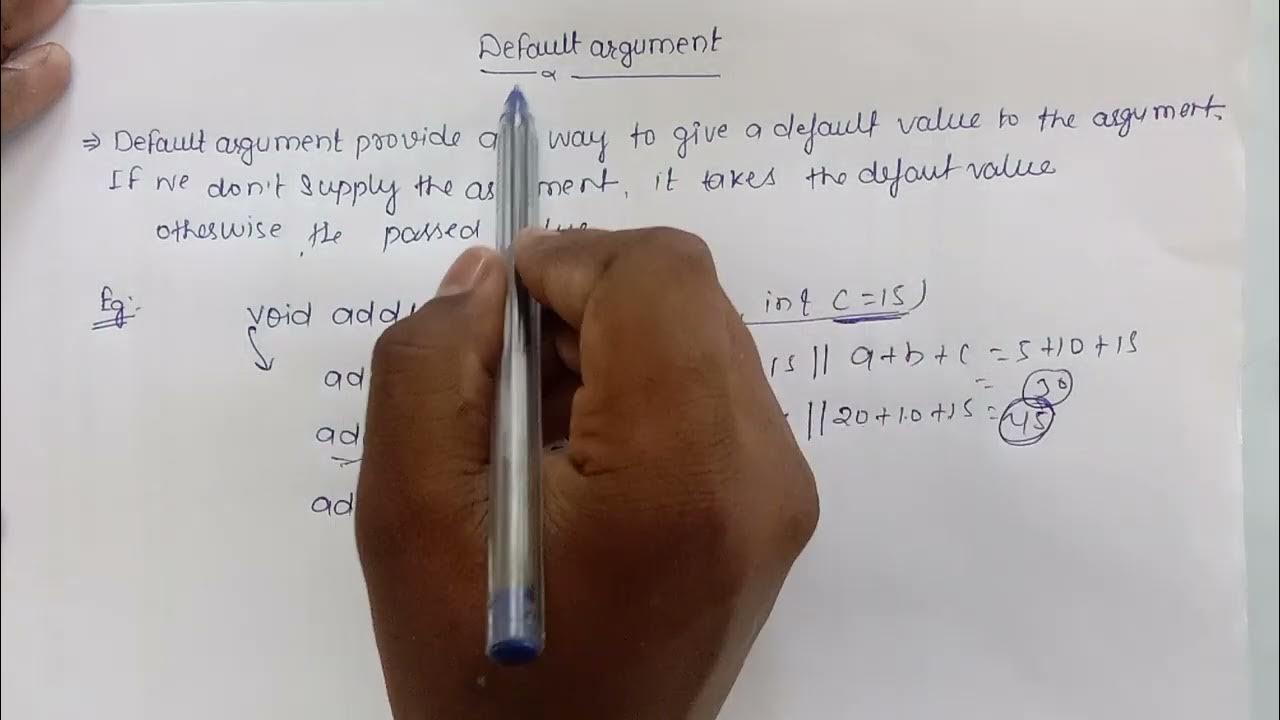 Default argument
⇒ Default argument provide way to give a default value to the argument.
If we don't supply the, it takes the defaut value
otherwise the passed
Eg:- void add int c=15)
ad 15 || a+b+c = 5+10+15
= 30
ad || 20+10+15 = 45
ad